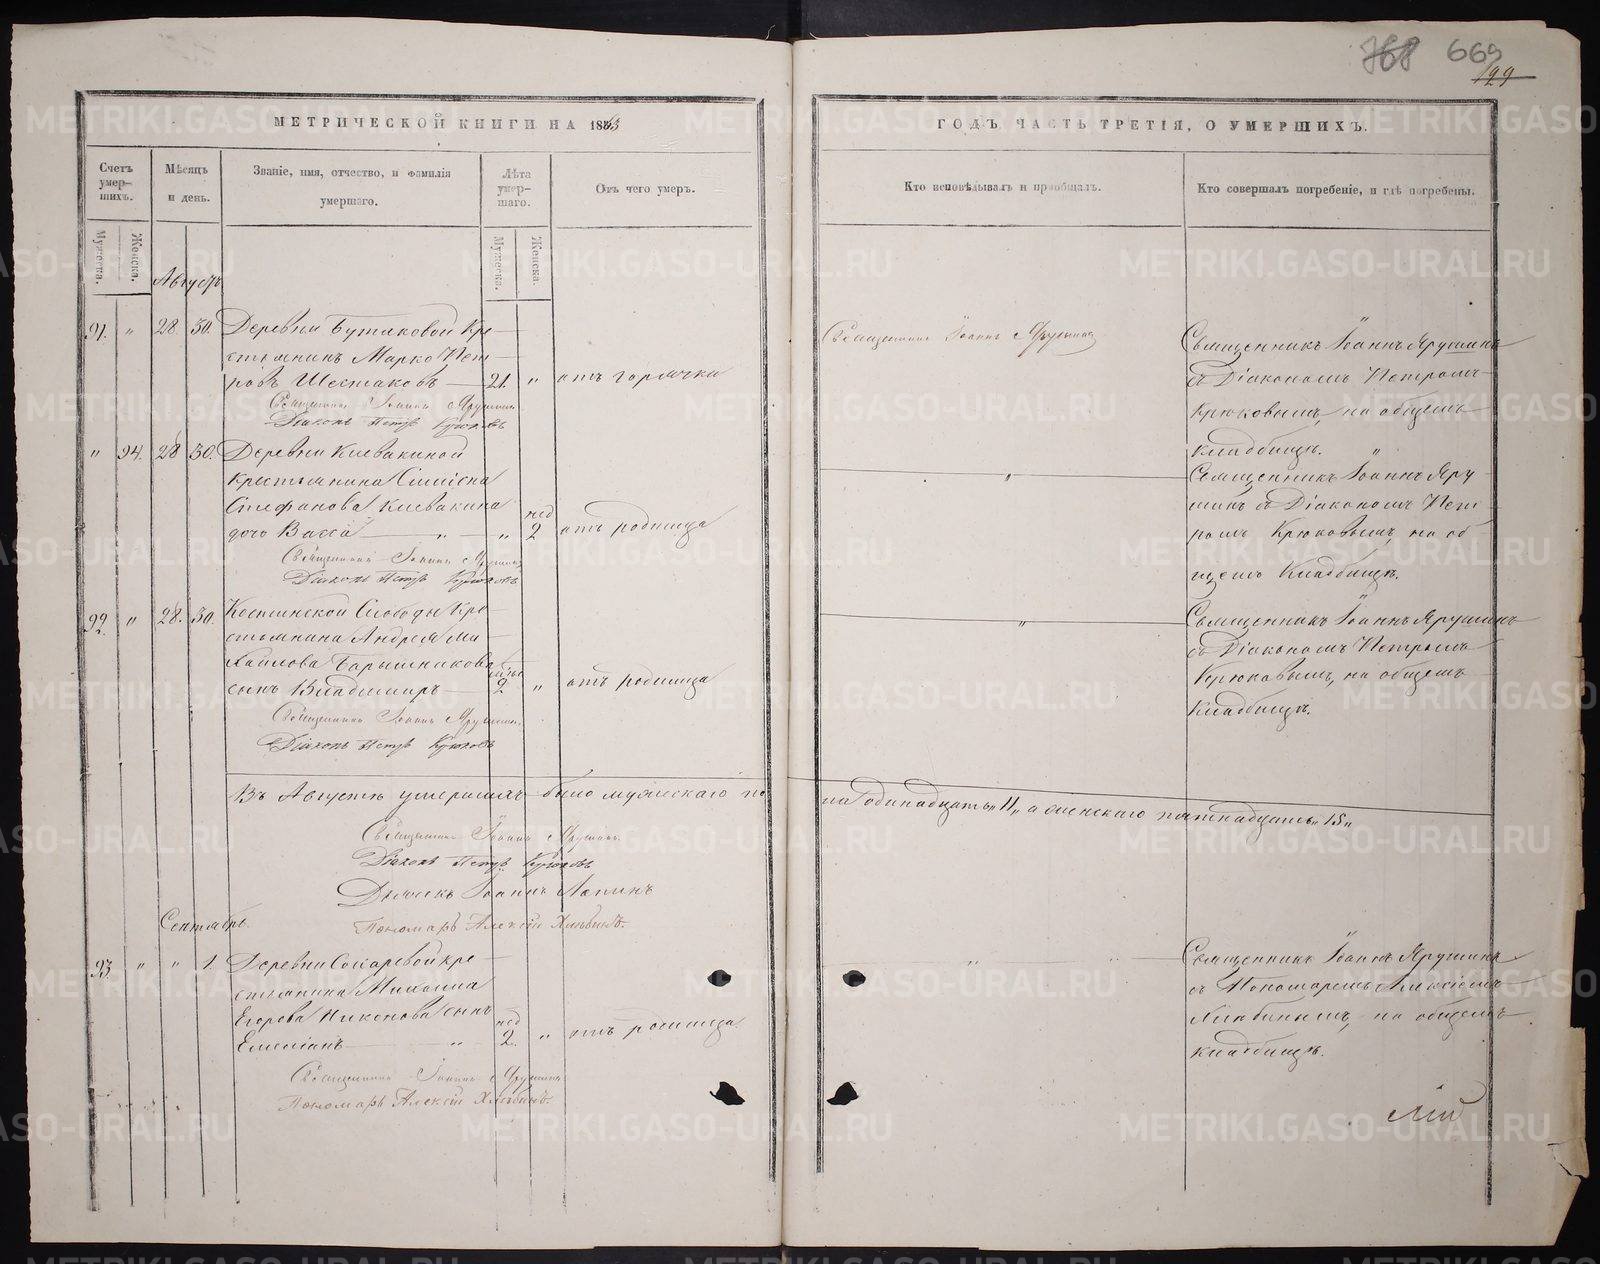 768 669
129
МЕТРИЧЕСКОЙ КНИГИ НА 1863
ГОДЪ, ЧАСТЬ ТРЕТІЯ, О УМЕРШИХЪ.
Счетъ умер-шихъ.
Мѣсяцъ и день.
Званіе, имя, отчество, и фамилія
умершаго.
Лѣта умер-шаго.
Отъ чего умеръ.
Кто исповѣдывалъ и пріобщалъ.
Кто совершалъ погребеніе, и гдѣ погребены.
Мужеска.
Женска.
Мужеска.
Женска.
Августъ
91. " 28. 30. Деревни Бутаковой Кре-
стьянинъ Марко Пет-
ровъ Шестаковъ 21. " отъ горячки
Священникъ Іоаннъ Ярушинъ
Діаконъ Петръ Крюковъ
Священникъ Іоаннъ Ярушинъ
Священникъ Іоаннъ Ярушинъ
съ Діакономъ Петромъ
Крюковымъ, на общемъ
кладбищѣ.
" 94. 28 30. Деревни Кивакиной
крестьянина
Стефанова Кивакина
дочь Васса " " нед 2 отъ родимца
Священникъ Іоаннъ Ярушинъ
Діаконъ Петръ Крюковъ
"
Священникъ Іоаннъ Яру-
шинъ съ Діакономъ Пет-
ромъ Крюковымъ, на об-
щемъ Кладбищѣ.
92. " 28. 30. Костинской Слободы Кре-
стьянина Андрея Ми-
хайлова Барышникова
сынъ Владимиръ 2 " отъ родимца
Священникъ Іоаннъ Ярушинъ
Діаконъ Петръ Крюковъ
"
Священникъ Іоаннъ Ярушинъ
съ Діакономъ Петромъ
Крюковымъ, на общемъ
Кладбищѣ.
Въ Августѣ умершихъ было мужескаго по
ла одинадцать "11", а женскаго пятнадцать "15"
Священникъ Іоаннъ Ярушинъ
Діаконъ Петръ Крюковъ
Дьячекъ Іоаннъ Лапинъ
Пономарь Алексій Хлѣбинъ.
Сентябрь
93. " " 1. Деревни Сохаревой кре-
стьянина Михаила
Егорова Никонова сынъ
Емеліанъ " нед 2. " отъ родимца
Священникъ Іоаннъ Ярушинъ
Пономарь Алексій Хлѣбинъ.
"
Священникъ Іоаннъ Ярушинъ
съ Пономаремъ Алексіемъ
Хлѣбинымъ, на общемъ
кладбищѣ.
METRIKI.GASO-URAL.RU